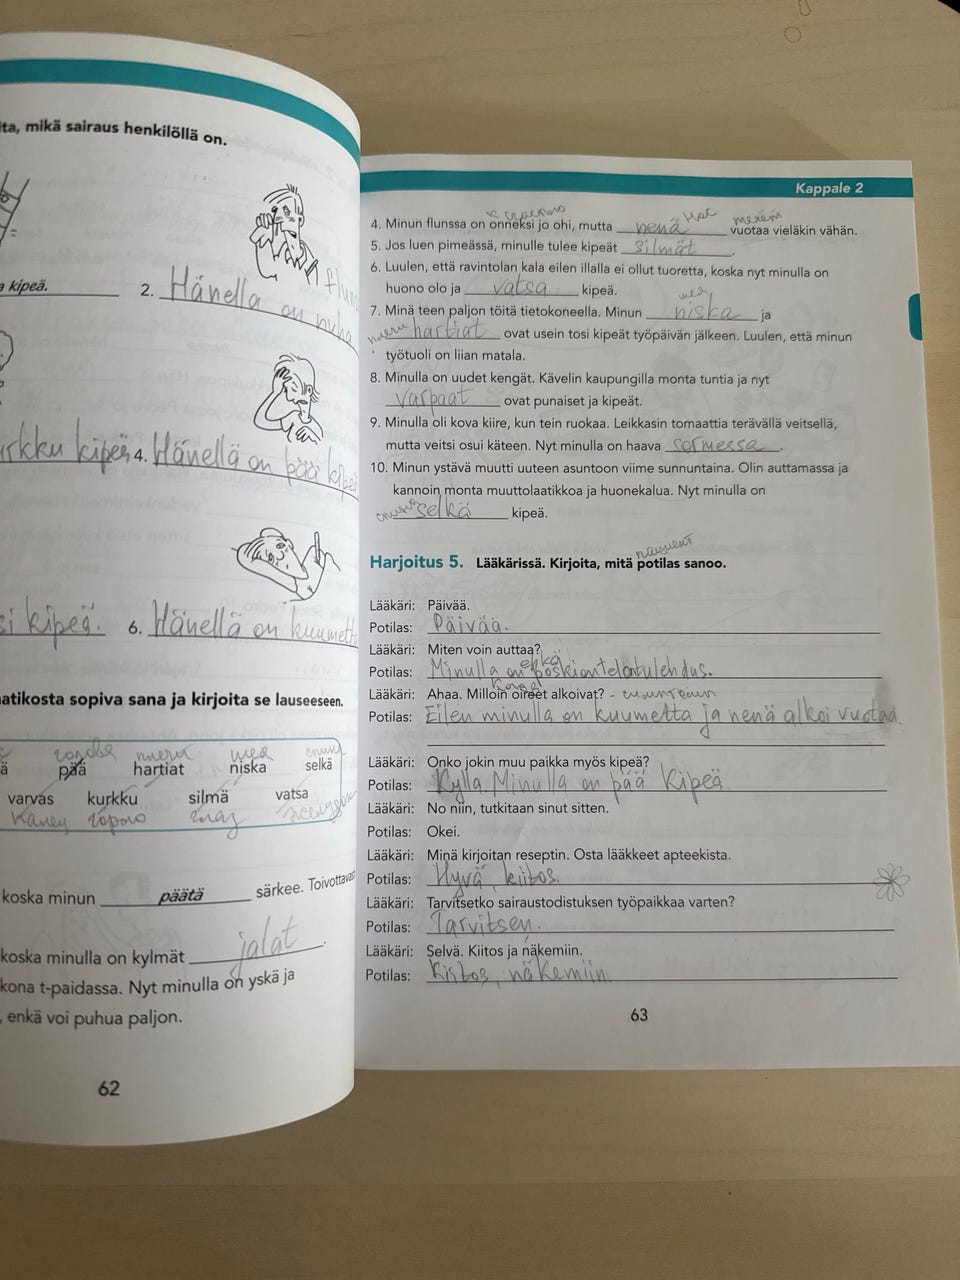 ta, mikä sairaus henkilöllä on.
a kipeä.
2. Hänella on nuha
flun
rkku kipeä
4. Hänellä on pää kipeä
si kipeä.
6. Hänellä on kuumetta
atikosta sopiva sana ja kirjoita se lauseeseen.
голова плечи шея спина
ä pää hartiat niska selkä
varvas kurkku silmä vatsa
палец горло глаз желудок
koska minun päätä särkee. Toivottavas
koska minulla on kylmät jalat.
kona t-paidassa. Nyt minulla on yskä ja
, enkä voi puhua paljon.
62
Kappale 2
к счастью нас
4. Minun flunssa on onneksi jo ohi, mutta nenä vuotaa vieläkin vähän.
5. Jos luen pimeässä, minulle tulee kipeät silmät.
6. Luulen, että ravintolan kala eilen illalla ei ollut tuoretta, koska nyt minulla on
huono olo ja vatsa kipeä.
шея
7. Minä teen paljon töitä tietokoneella. Minun niska ja
плечи hartiat ovat usein tosi kipeät työpäivän jälkeen. Luulen, että minun
työtuoli on liian matala.
8. Minulla on uudet kengät. Kävelin kaupungilla monta tuntia ja nyt
varpaat ovat punaiset ja kipeät.
9. Minulla oli kova kiire, kun tein ruokaa. Leikkasin tomaattia terävällä veitsellä,
mutta veitsi osui käteen. Nyt minulla on haava sormessa.
10. Minun ystävä muutti uuteen asuntoon viime sunnuntaina. Olin auttamassa ja
kannoin monta muuttolaatikkoa ja huonekalua. Nyt minulla on
спина selkä kipeä.
пациент
Harjoitus 5. Lääkärissä. Kirjoita, mitä potilas sanoo.
Lääkäri: Päivää.
Potilas: Päivää.
Lääkäri: Miten voin auttaa?
ehkä
Potilas: Minulla on poskiontelontulehdus.
когда
Lääkäri: Ahaa. Milloin oireet alkoivat? - симптомы
Potilas: Eilen minulla on kuumetta ja nenä alkoi vuotaa.
Lääkäri: Onko jokin muu paikka myös kipeä?
Potilas: Kyllä. Minulla on pää kipeä.
Lääkäri: No niin, tutkitaan sinut sitten.
Potilas: Okei.
Lääkäri: Minä kirjoitan reseptin. Osta lääkkeet apteekista.
Potilas: Hyvä, kiitos.
Lääkäri: Tarvitsetko sairaustodistuksen työpaikkaa varten?
Potilas: Tarvitsen.
Lääkäri: Selvä. Kiitos ja näkemiin.
Potilas: Kiitos, näkemiin.
63